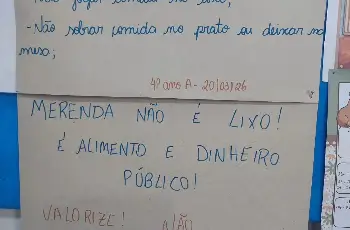 - Não sobrar comida no prato ou deixar na
mesa;
4º ano A - 20/03/26
MERENDA NÃO É LIXO!
É ALIMENTO E DINHEIRO
PÚBLICO!
VALORIZE! NÃO